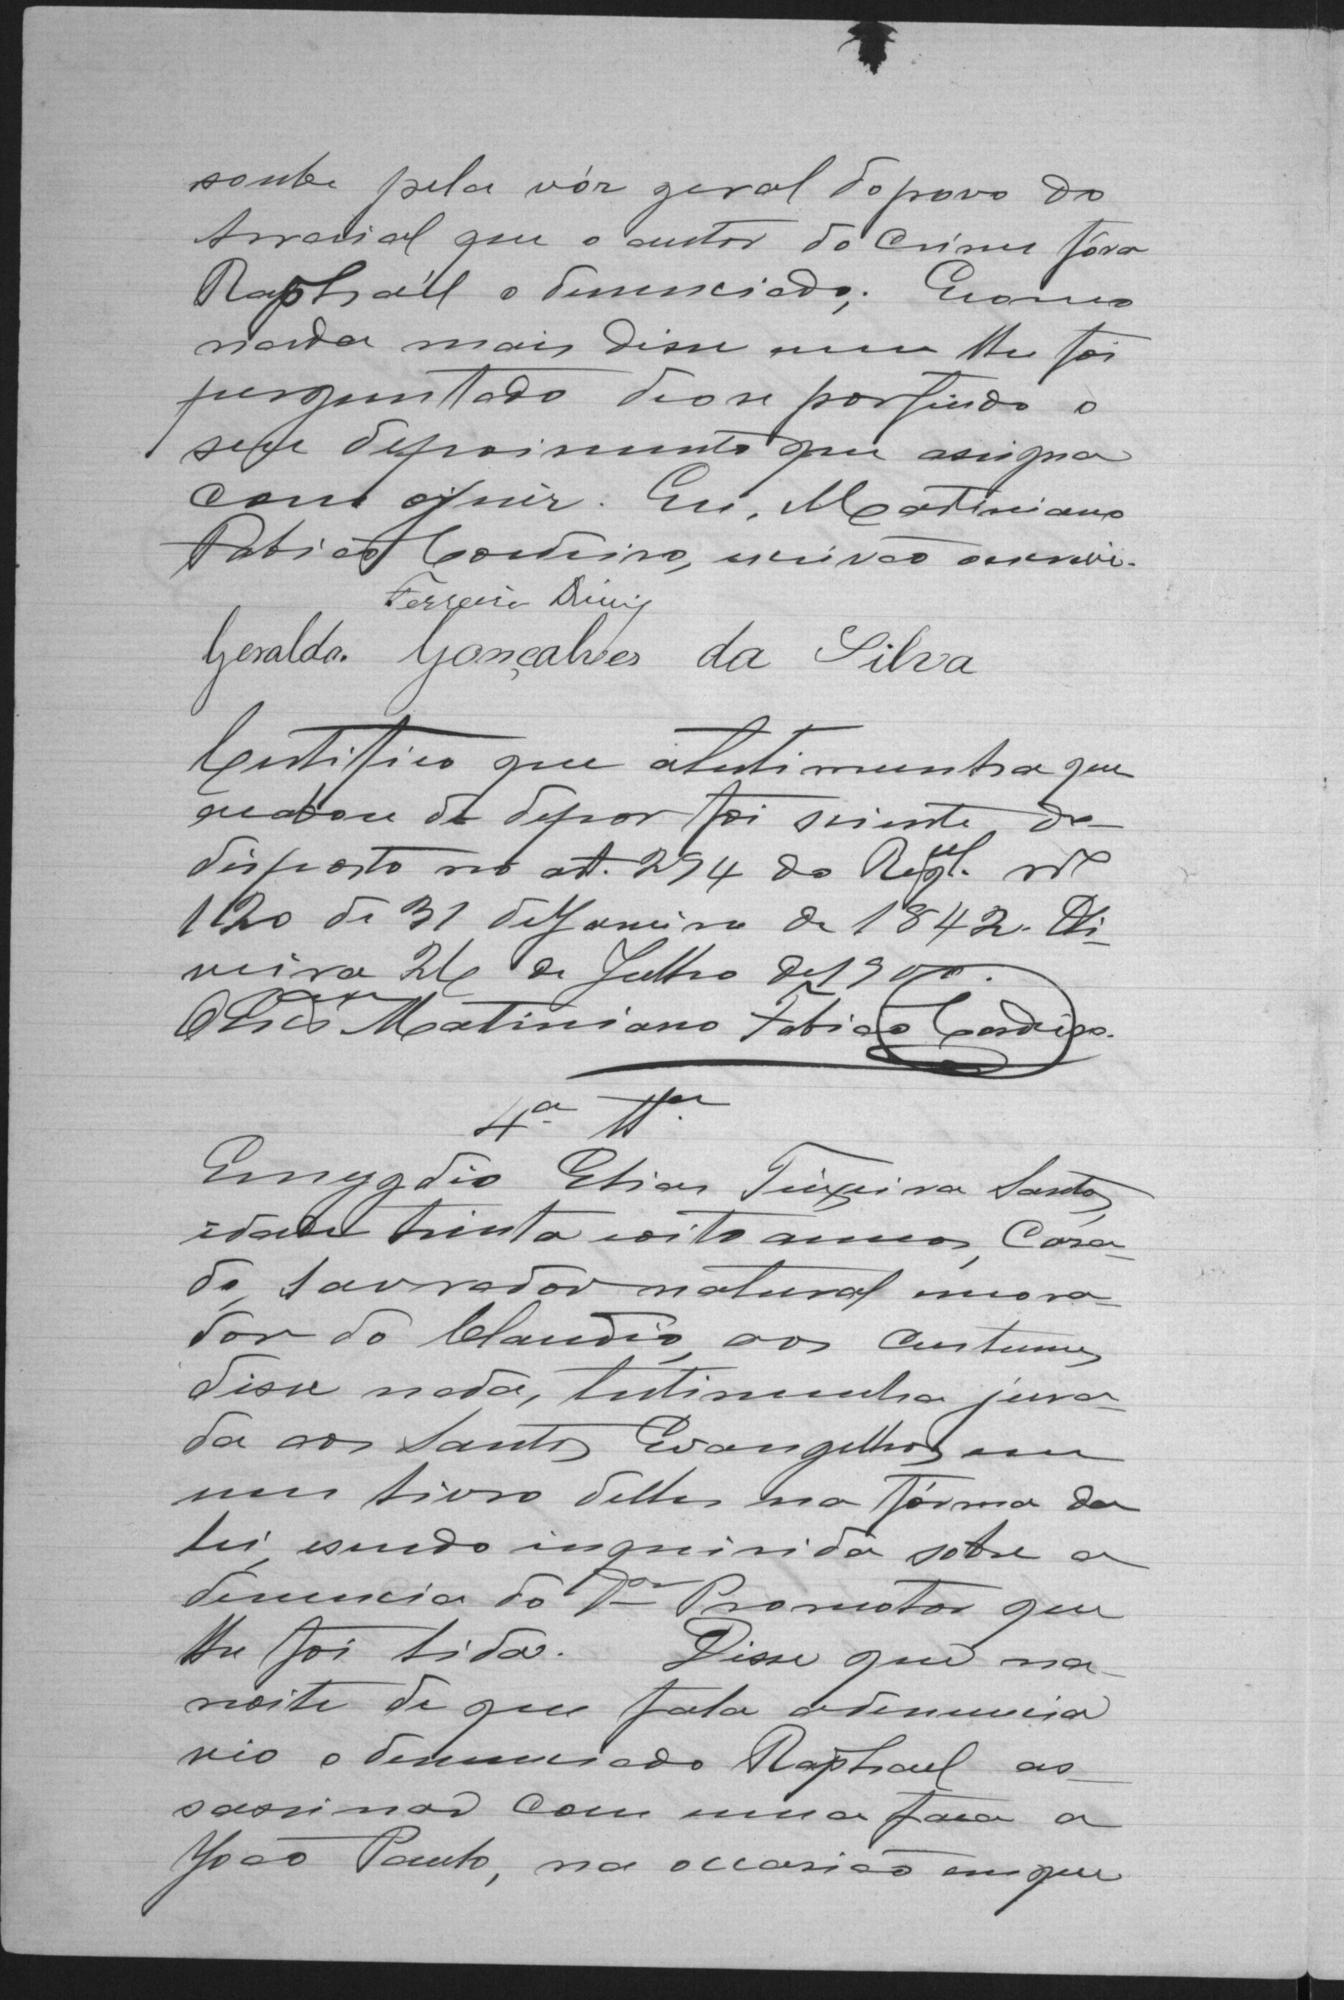 soube pela vóz geral do povo do
Arraial que o autor do crime fôra
Raphaél o denunciado; E como
nada mais disse nem lhe foi
perguntado deose por findo o
seu depoimento que assigna
com o juiz. Eu, Matiniano
Fabião Cordeiro, escrivão o escrevi.
Ferreira Diniz
Geraldo Gonçalves da Silva
Certifico que a testimunha que
acabou de depor foi sciente do
disposto no art. 294 do Regul. nº
120 de 31 de Janeiro de 1842. Oli-
veira 26 de Julho de 1900.
O Escrivão Matiniano Fabião Cordeiro.
4ª Ttª
Emygdio Elias Teixeira Santos,
idade trinta e oito annos, Casa-
do, lavrador natural e mora-
dor do Claudio, aos custumes
disse nada, testimunha jura-
da aos Santos Evangelhos em
um livro delles na fórma da
lei, e sendo inquirida sobre a
denuncia do Dr Promotor que
lhe foi lida. Disse que na
noite de que fala a denuncia
vio o denunciado Raphael as-
sassinar com uma faca a
João Paulo, na occasião em que